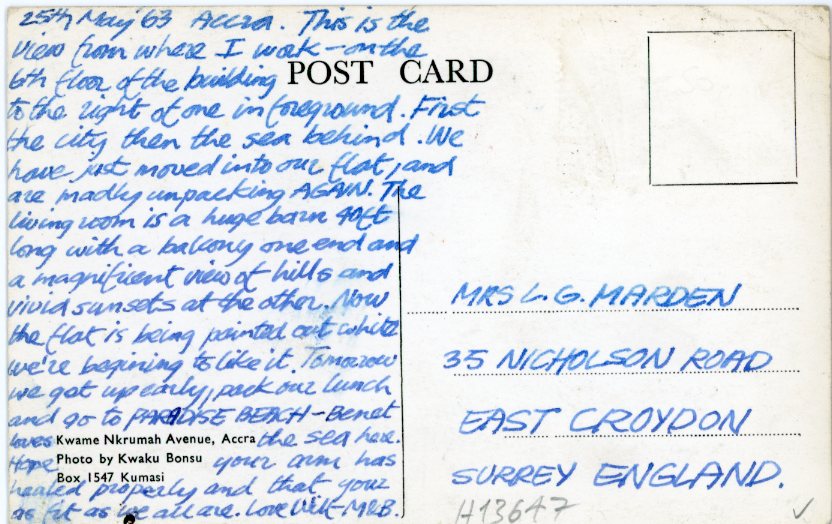 25th May '63 Accra. This is the
view from where I work - on the
6th floor of the building
to the right of one in foreground. First
the city then the sea behind. We
have just moved into our flat, and
are madly unpacking AGAIN. The
living room is a huge barn 40ft
long with a balcony one end and
a magnificent view of hills and
vivid sunsets at the other. Now
the flat is being painted out white
we're begining to like it. Tomorrow
we get up early, pack our lunch
and go to PARADISE BEACH - Benet
loves the sea here.
Hope your arm has
healed properly and that your
as fit as we all are. Love
POST CARD
Kwame Nkrumah Avenue, Accra
Photo by Kwaku Bonsu
Box 1547 Kumasi
MRS L. G. MARDEN
35 NICHOLSON ROAD
EAST CROYDON
SURREY ENGLAND.
H13647